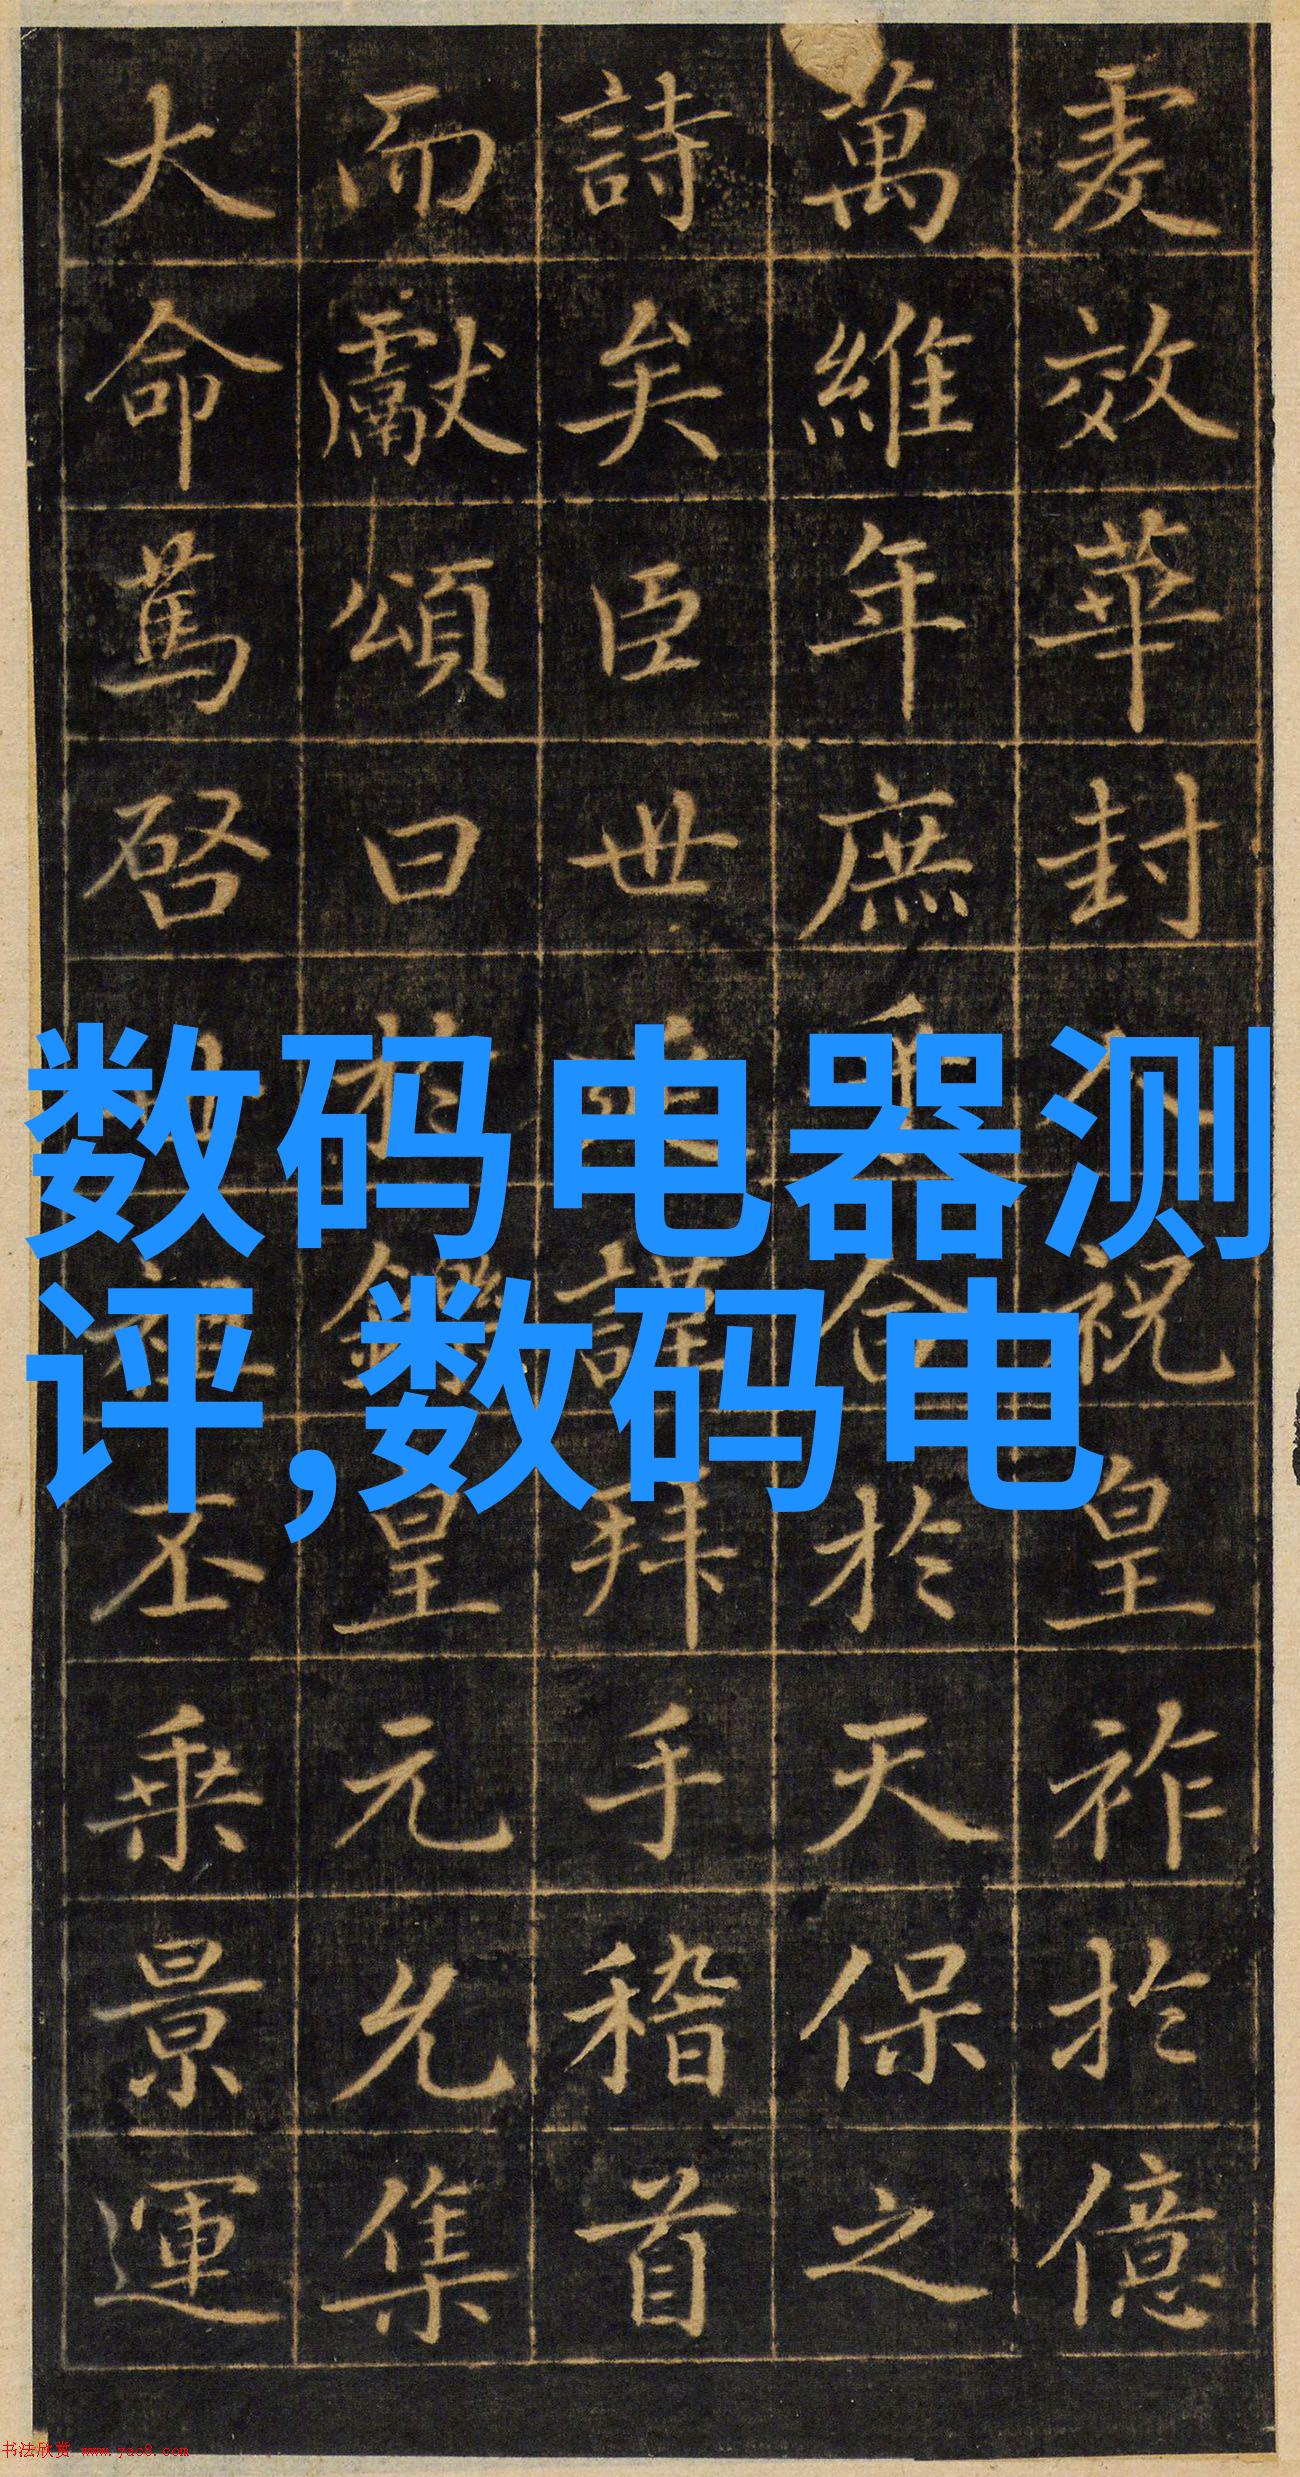 虔效華封祝皇祚於億
萬維年庶乎合於天保之
詩矣臣世謹拜手稽首
而獻頌曰於鑠皇元允集
大命篤啓祖丕乘景運
数码电器测
评,数码电
书法欣赏 www.yac8.com